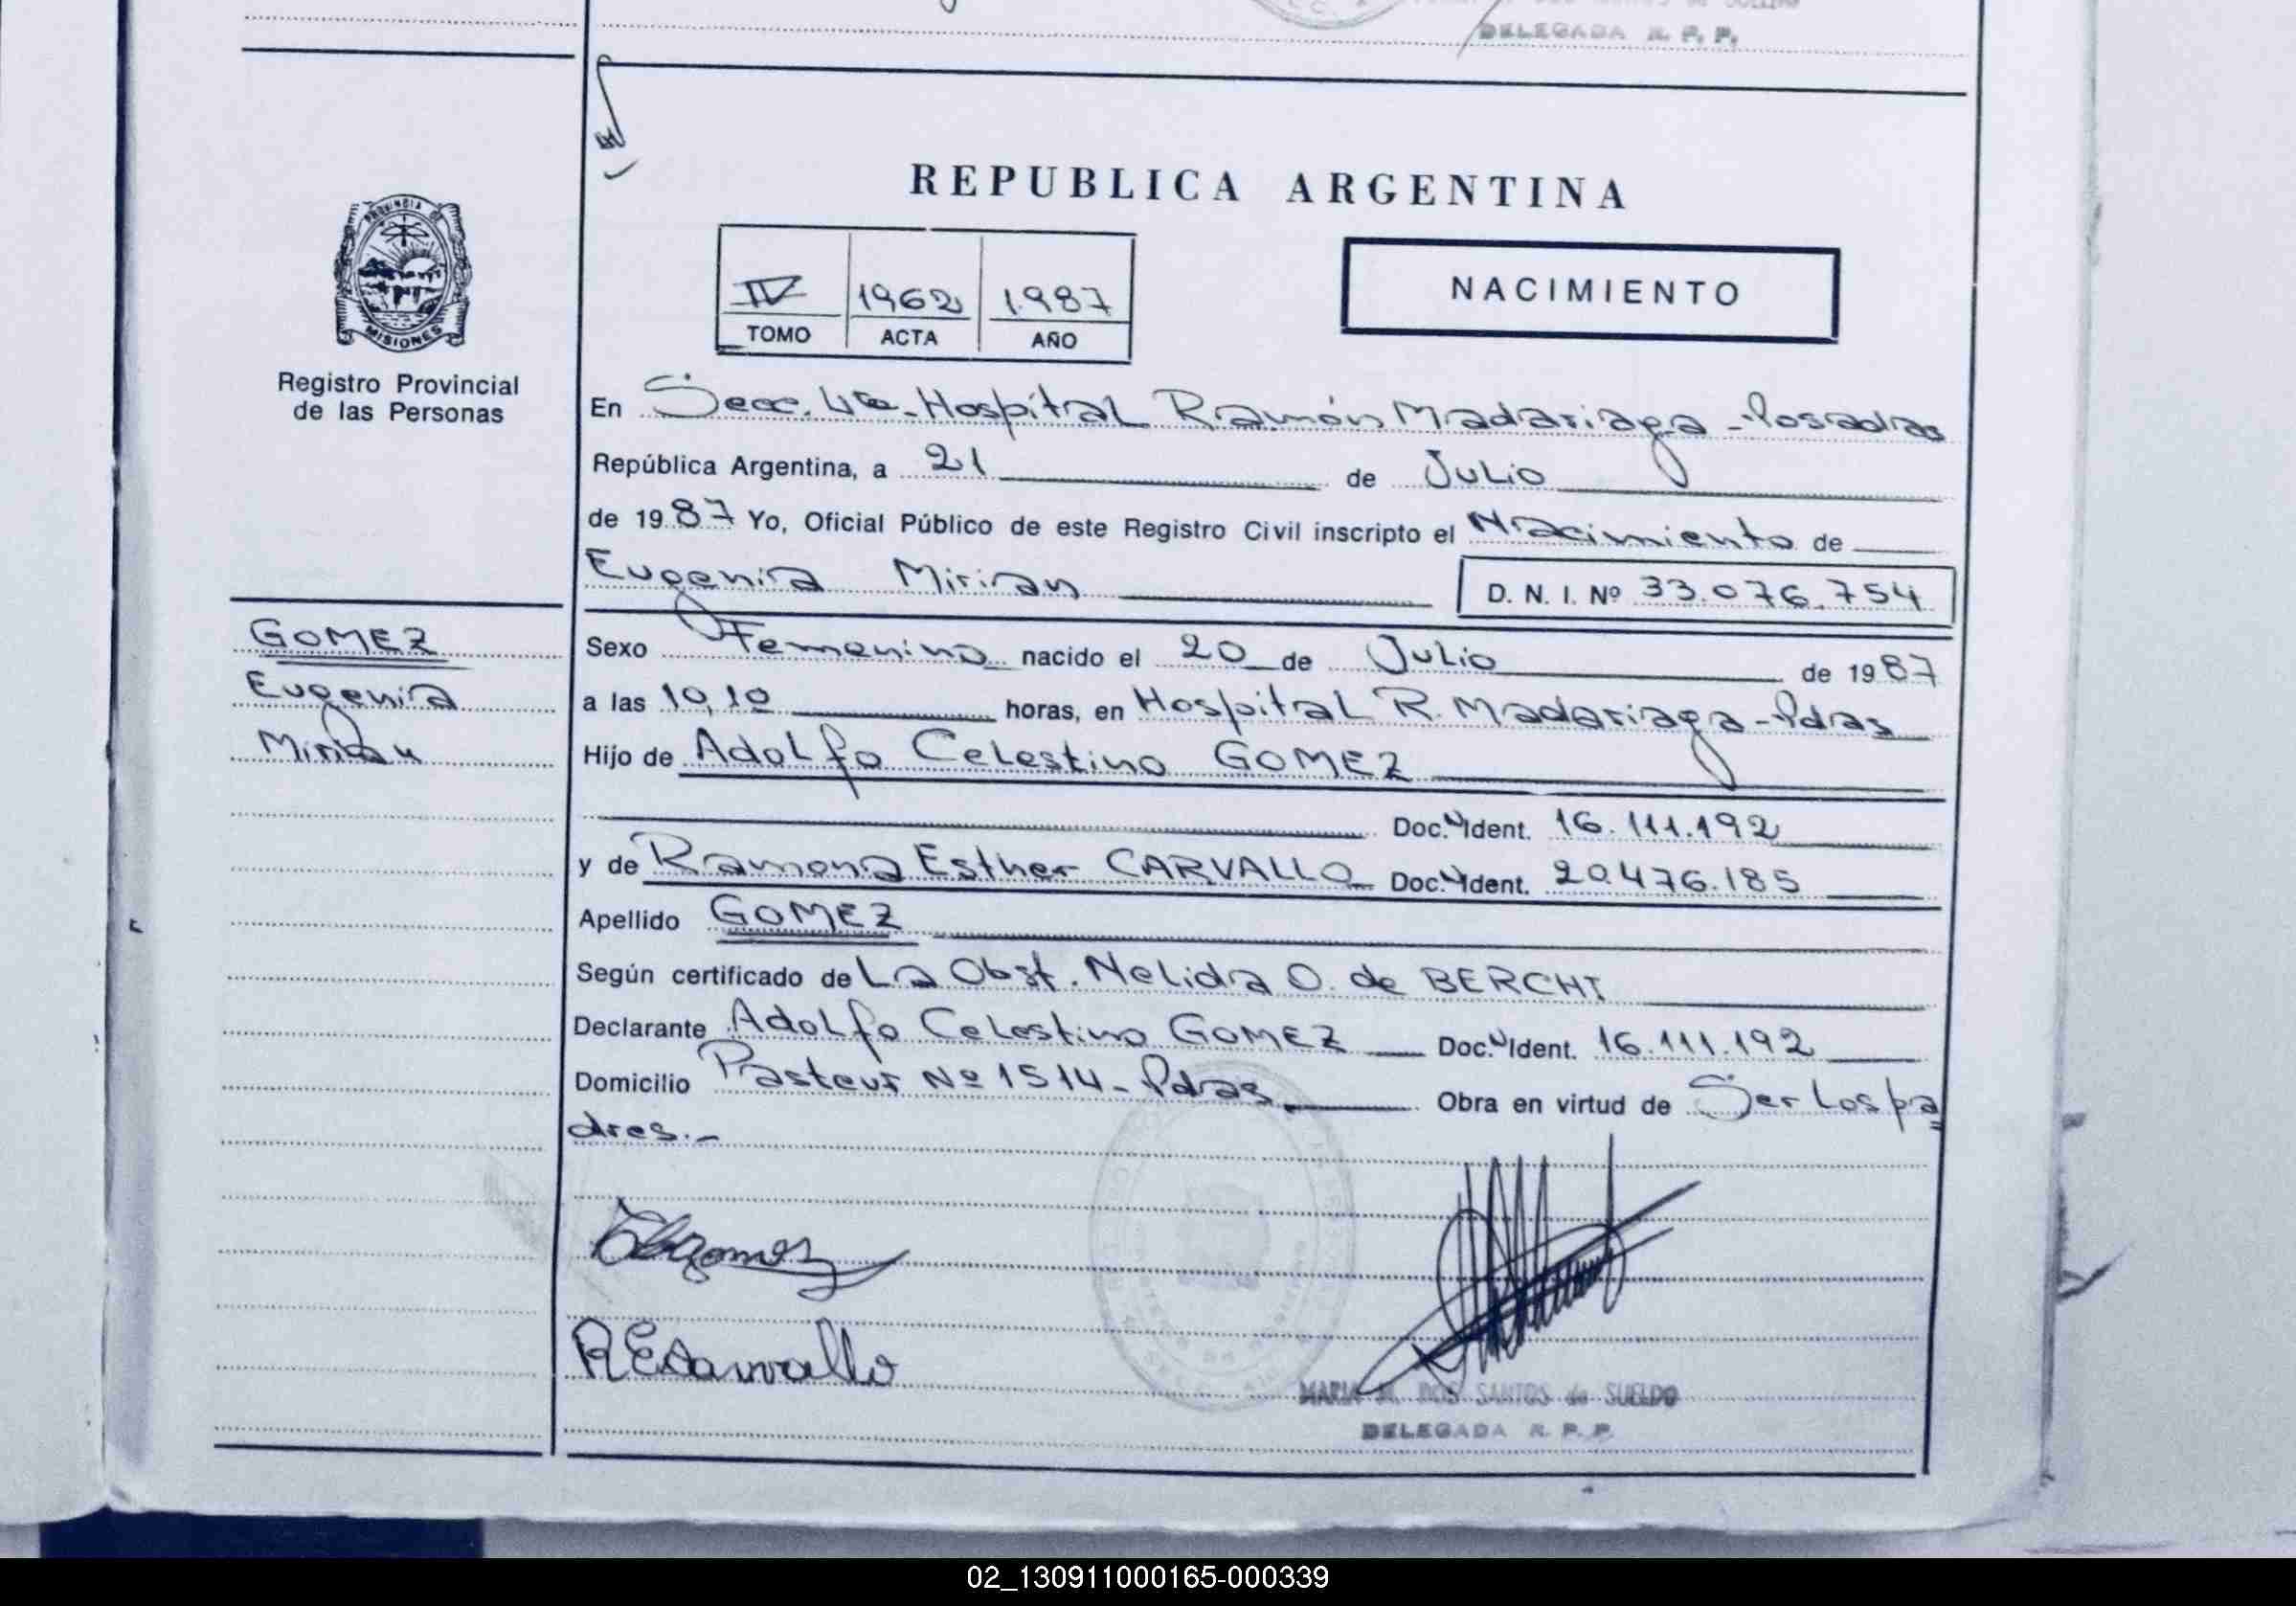 DELEGADA R. P. P.
REPUBLICA ARGENTINA
PROVINCIA DE
MISIONES
IV 1962 1987
TOMO ACTA AÑO
NACIMIENTO
Registro Provincial
de las Personas
En Secc. 4ta. Hospital Ramón Madariaga - Posadas
República Argentina, a 21 de Julio
de 1987 Yo, Oficial Público de este Registro Civil inscripto el Nacimiento de
Eugenia Mirian D. N. I. Nº 33.076.754
GOMEZ
Eugenia
Mirian
Sexo Femenino nacido el 20 de Julio de 1987
a las 10,10 horas, en Hospital R. Madariaga - Pdas
Hijo de Adolfo Celestino GOMEZ
Doc. Ident. 16.111.192
y de Ramona Esther CARVALLO Doc. Ident. 20.476.185
Apellido GOMEZ
Según certificado de La Obst. Nelida O. de BERCHT
Declarante Adolfo Celestino GOMEZ Doc. Ident. 16.111.192
Domicilio Pasteur Nº 1514 - Pdas Obra en virtud de Ser los pa
dres.-
R E Carvallo
MARIA M. DOS SANTOS de SUELDO
DELEGADA R. P. P.
02_130911000165-000339